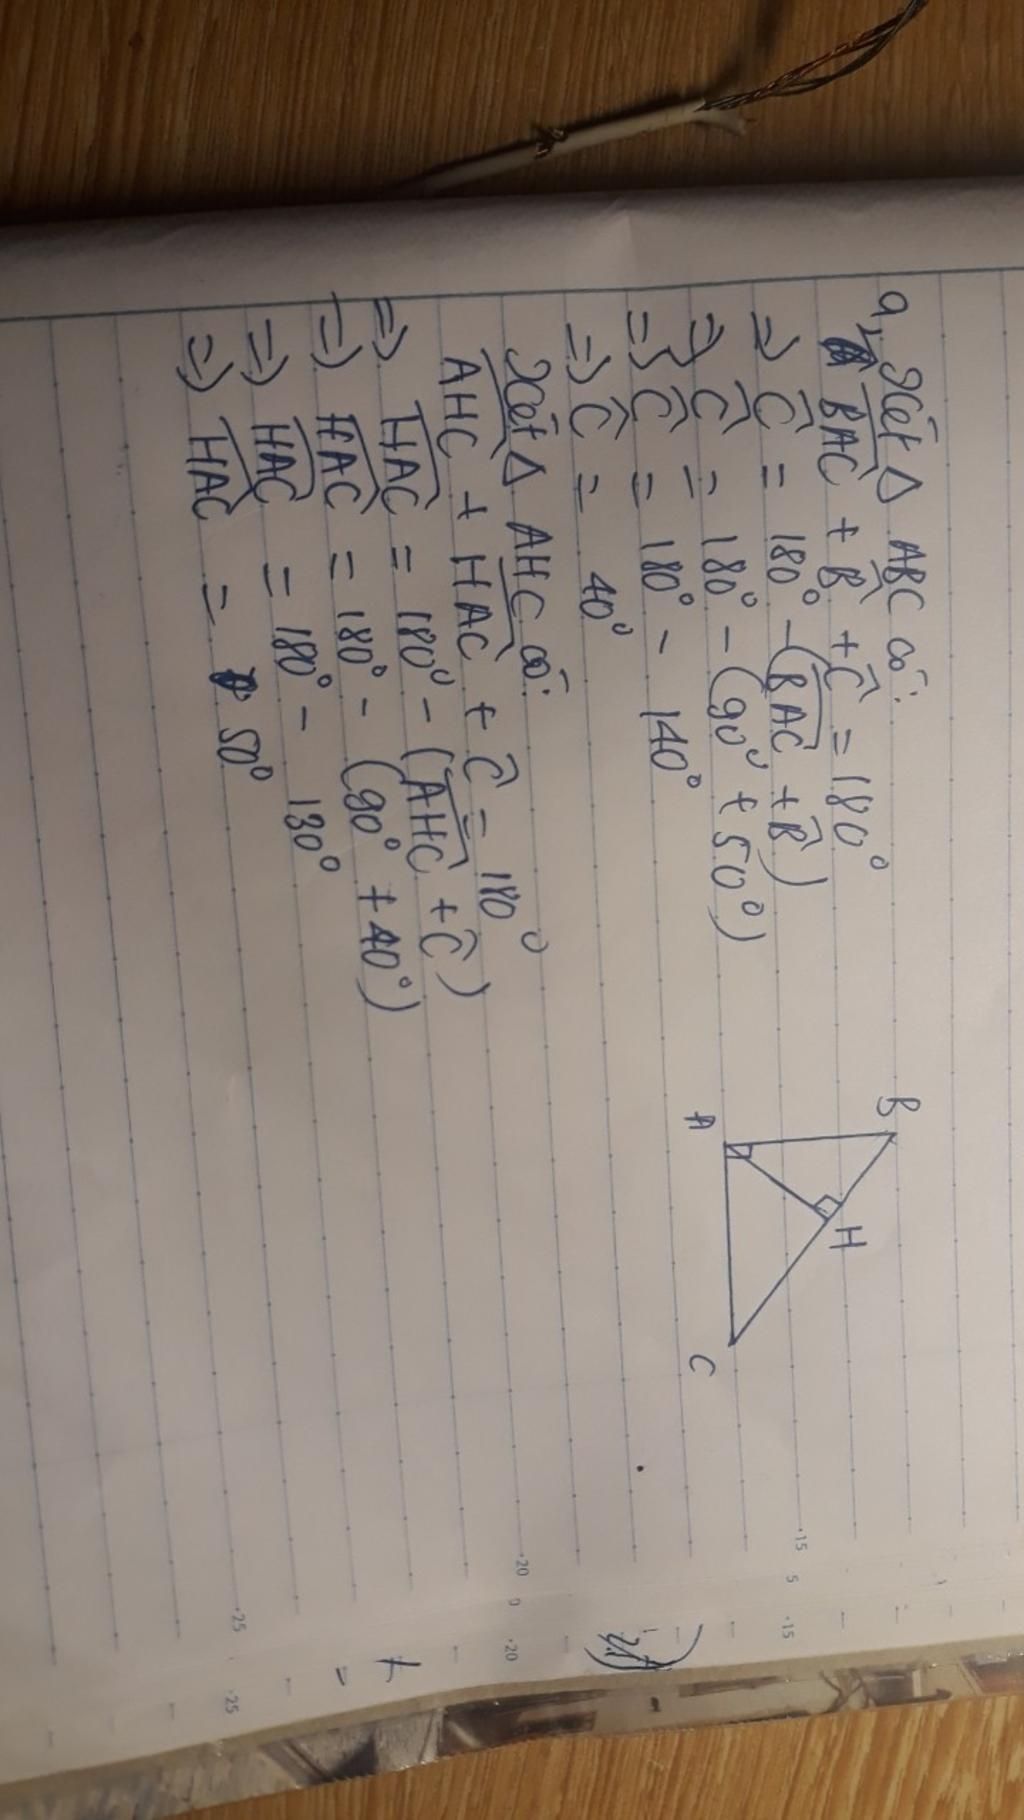 a, Xét Δ ABC có:
BAC + B̂ + Ĉ = 180°
=> Ĉ = 180° - (BAC + B̂)
=> Ĉ = 180° - (90° + 50°)
=> Ĉ = 180° - 140°
=> Ĉ = 40°
Xét Δ AHC có:
AHC + HAC + Ĉ = 180°
=> HAC = 180° - (AHC + Ĉ)
=> HAC = 180° - (90° + 40°)
=> HAC = 180° - 130°
=> HAC = 50°
B
A
H
C
15
5
15
20
0
20
25
25